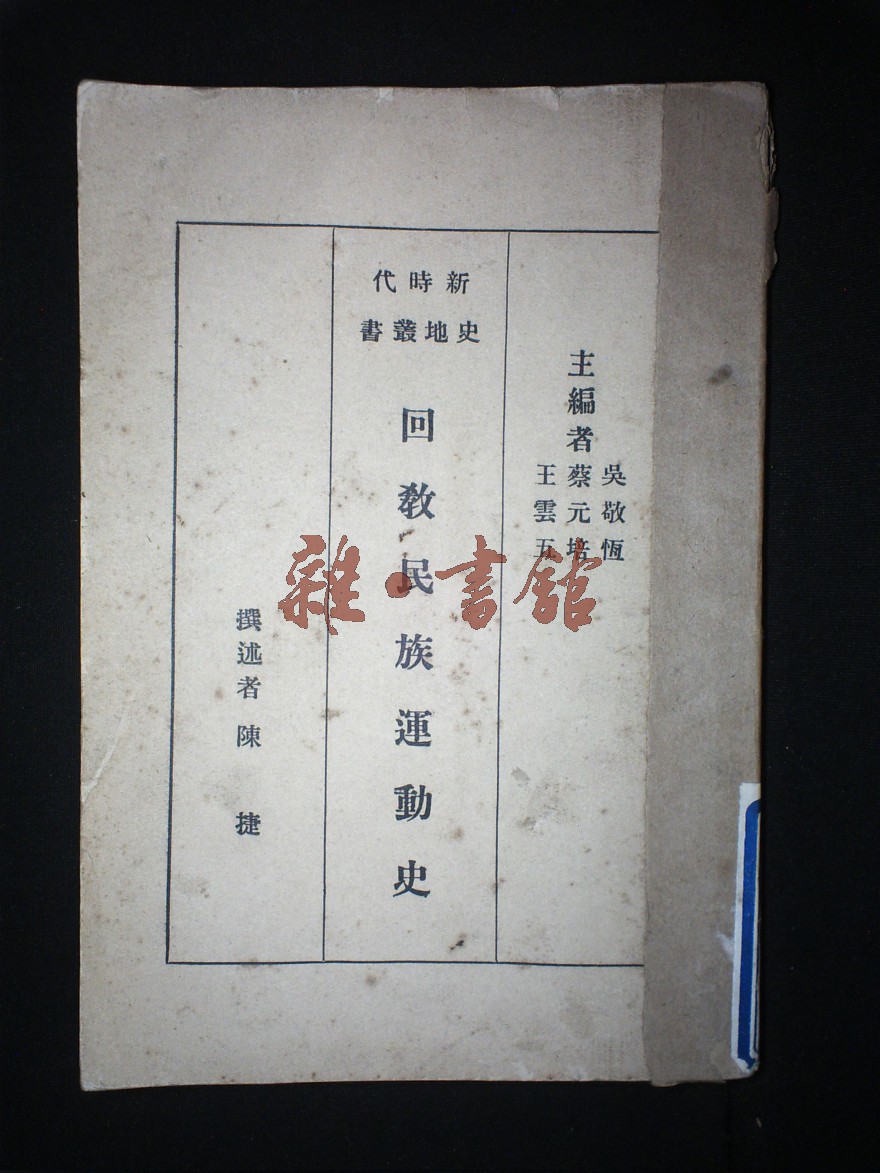 主編者
吳敬恆
蔡元培
王雲五
新時代
史地叢書
回教民族運動史
撰述者 陳捷
雜·書館